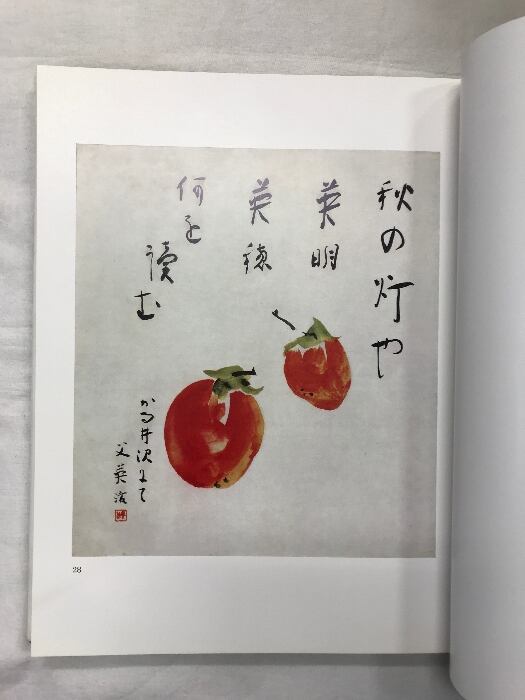 秋の灯や
英明
英穂
何を
読む
かる井沢にて
父英治
28